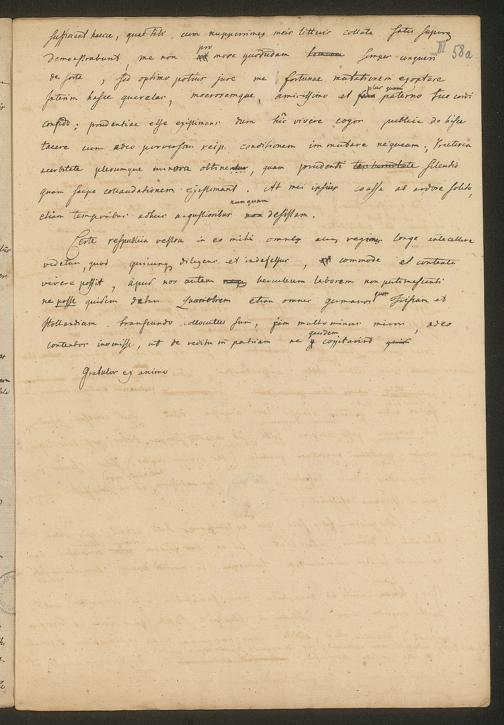 sufficiant haecce, quae tibi cum nuperrimis meis litteris collata satis superq
III 58a
demonstrabunt me non pro more quodam semper conqueri
de sorte, sed optimo potius jure me fortunae mutationem exoptare
Interim hasce querelas, moeroremque, amicissimo et plus quam paterno tuo cordi
confido; prudentiae esse existimans dum hic vivere cogor publice de bisce
tacere cum adeo perversam reip. conditionem immutare nequeam,
acerbitate plerumque obtine, quam prudenti silentio
quam saepe collaudationem existimant. At mei ipsius causa ab ardore solito,
etiam temporibus adhuc angustioribus nunquam desistam.
Certe respublica vestra in eo mihi omnes longe antecellere
videtur, quod quicunq diligens et indefessus, commode et contente
vivere possit, apud nos autem herculeum laborem non pertimescenti
ne posse quidem datur etiam omnes germanos quos ad
Hollandiam transeundo collocutus sum, jam multo minus miror, adeo
contentos inveniisse, ut de reditu in patriam ne quidem cogitarint
Gratulor ex animo